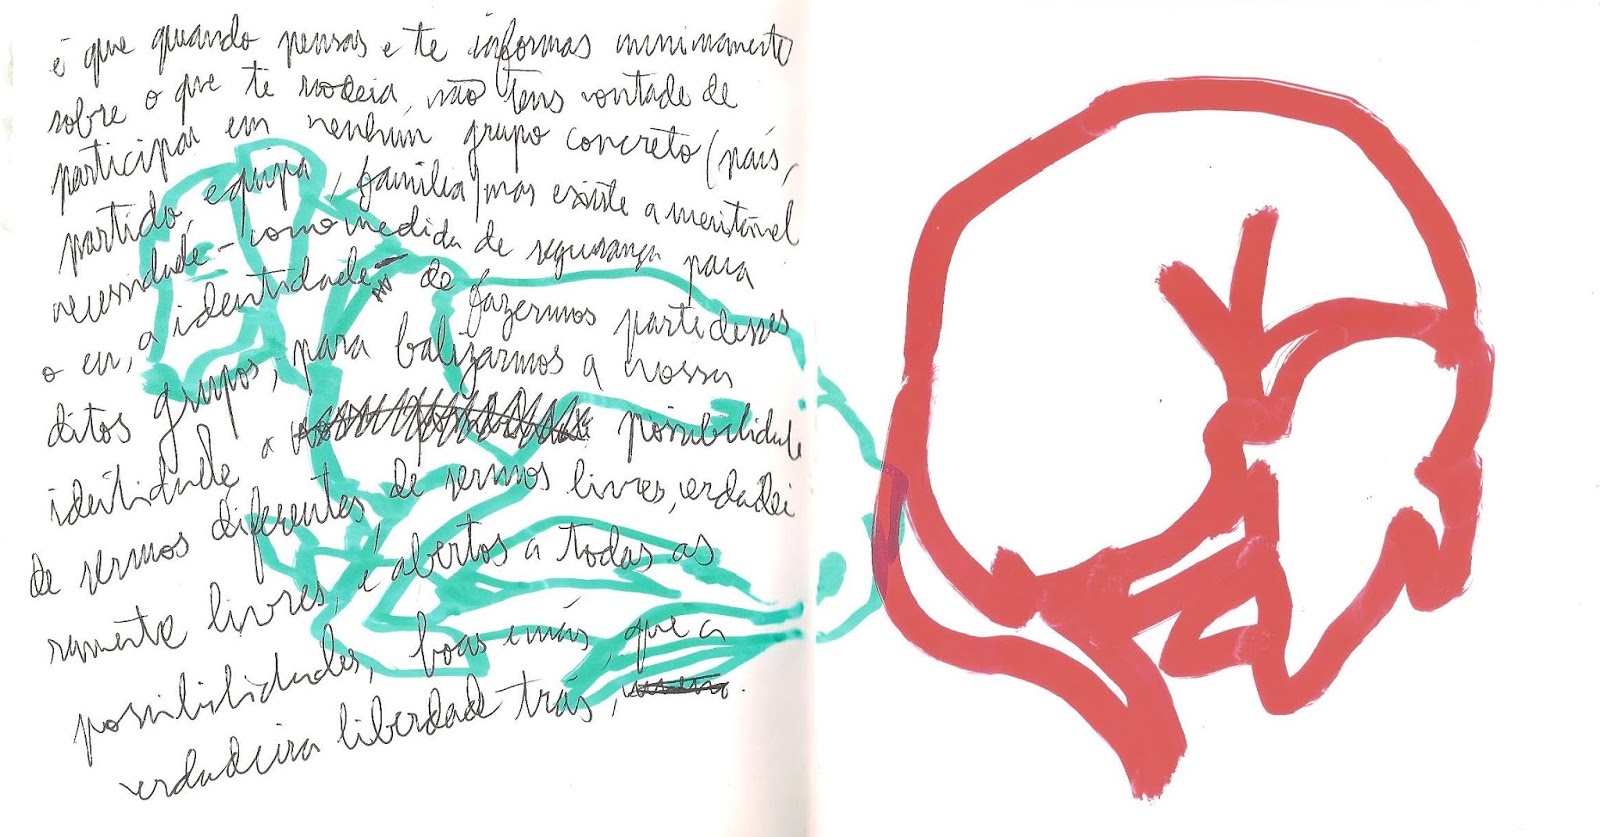 é que quando pensas e te informas minimamente
sobre o que te rodeia, não tens vontade de
participar em nenhum grupo concreto (país,
partido, equipa, família) mas existe a inevitável
necessidade - como medida de segurança para
o eu, a identidade - de fazermos parte desses
ditos grupos, para balizarmos a nossa
identidade a possibilidade
de sermos diferentes, de sermos livres, verdadei
ramente livres, é abertos a todas as
possibilidades, boas e más, que a
verdadeira liberdade trás,